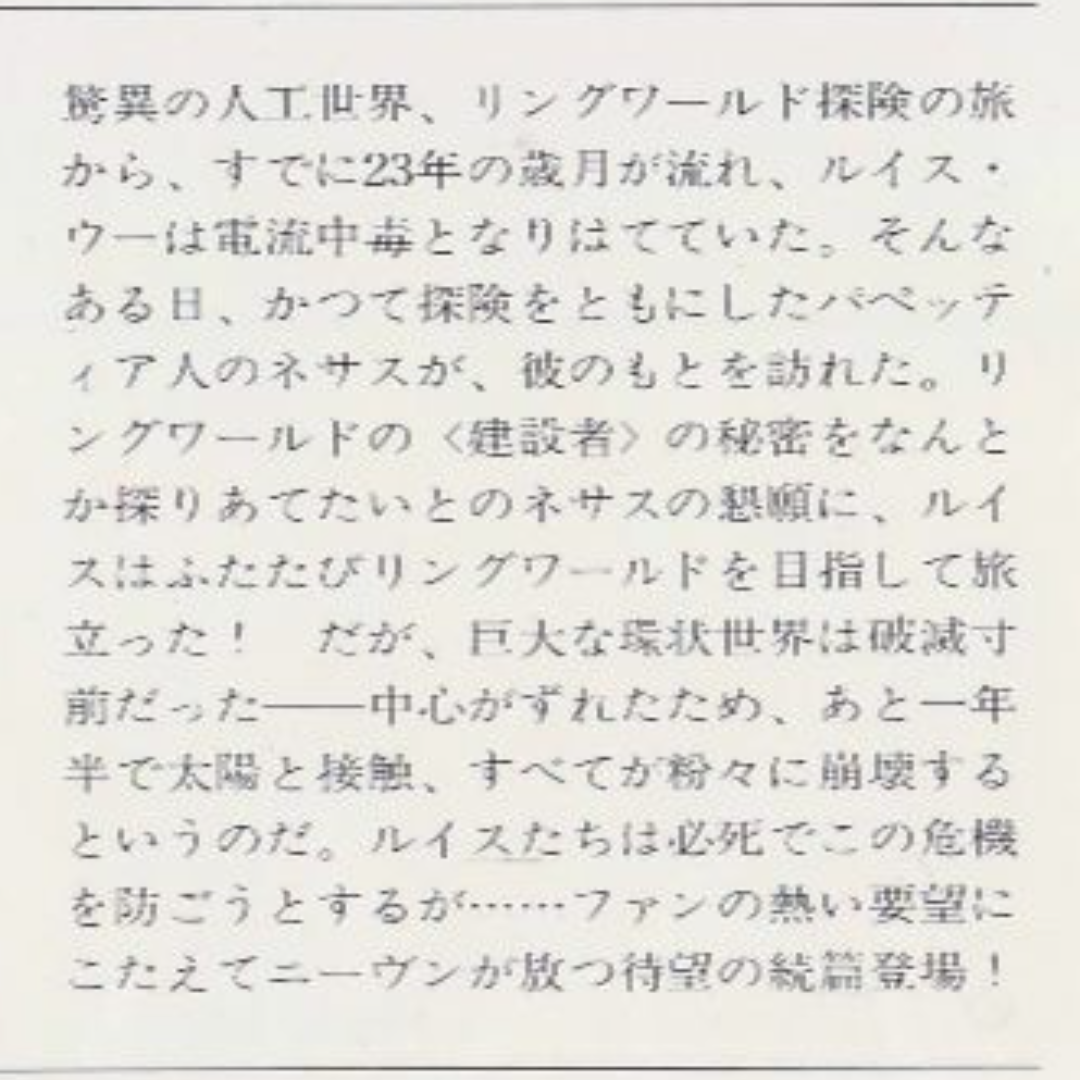 驚異の人工世界、リングワールド探険の旅
から、すでに23年の歳月が流れ、ルイス・
ウーは電流中毒となりはてていた。そんな
ある日、かつて探険をともにしたパペッテ
ィア人のネサスが、彼のもとを訪れた。リ
ングワールドの〈建設者〉の秘密をなんと
か探りあてたいとのネサスの懇願に、ルイ
スはふたたびリングワールドを目指して旅
立った！　だが、巨大な環状世界は破滅寸
前だった——中心がずれたため、あと一年
半で太陽と接触、すべてが粉々に崩壊する
というのだ。ルイスたちは必死でこの危機
を防ごうとするが……ファンの熱い要望に
こたえてニーヴンが放つ待望の続篇登場！